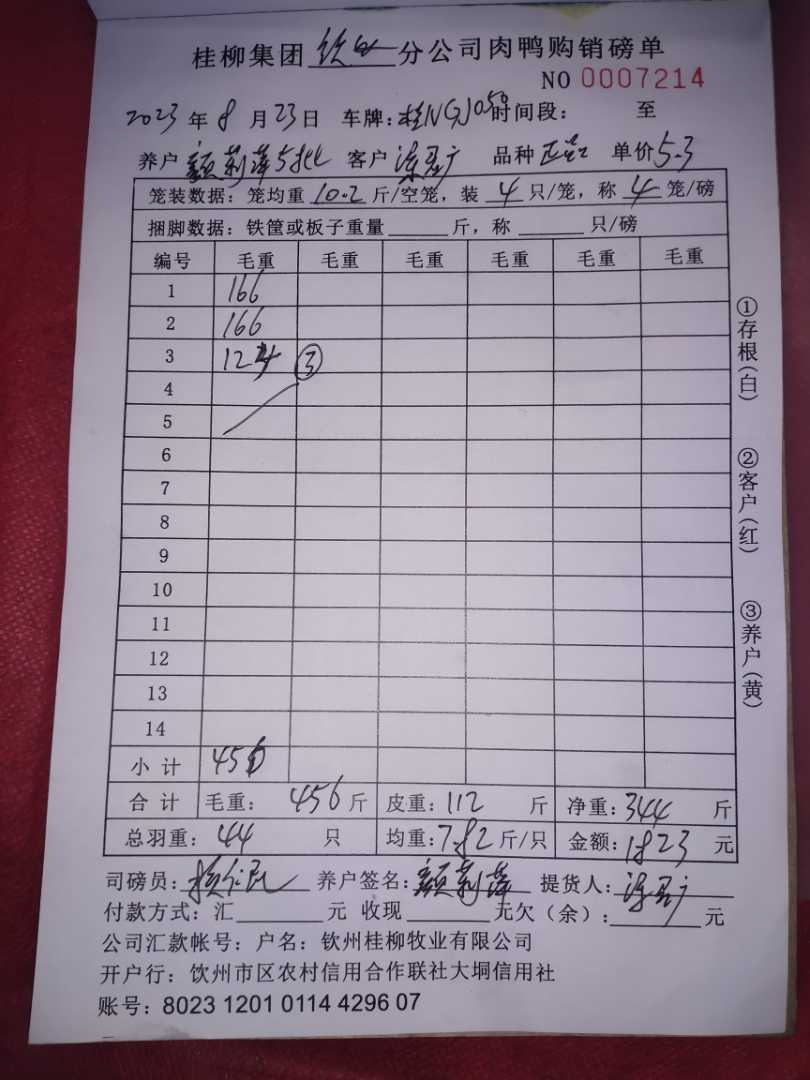 桂柳集团 钦州 分公司肉鸭购销磅单
NO 0007214
2023 年 8 月 23 日 车牌: 桂NGJ050 时间段: 至
养户 莉萍 客户 品种 单价 5.3
笼装数据: 笼均重 10.2 斤/空笼, 装 4 只/笼, 称 4 笼/磅
捆脚数据: 铁筐或板子重量 斤, 称 只/磅
编号 毛重 毛重 毛重 毛重 毛重 毛重
1 166
2 166
3 124 ③
4
5
6
7
8
9
10
11
12
13
14
小计 456
合计 毛重: 456 斤 皮重: 112 斤 净重: 344 斤
总羽重: 44 只 均重: 7.82 斤/只 金额: 1823 元
司磅员: 养户签名: 莉萍 提货人:
付款方式: 汇 元 收现 元欠(余): 元
公司汇款帐号: 户名: 钦州桂柳牧业有限公司
开户行: 钦州市区农村信用合作联社大垌信用社
账号: 8023 1201 0114 4296 07
①存根(白)
②客户(红)
③养户(黄)